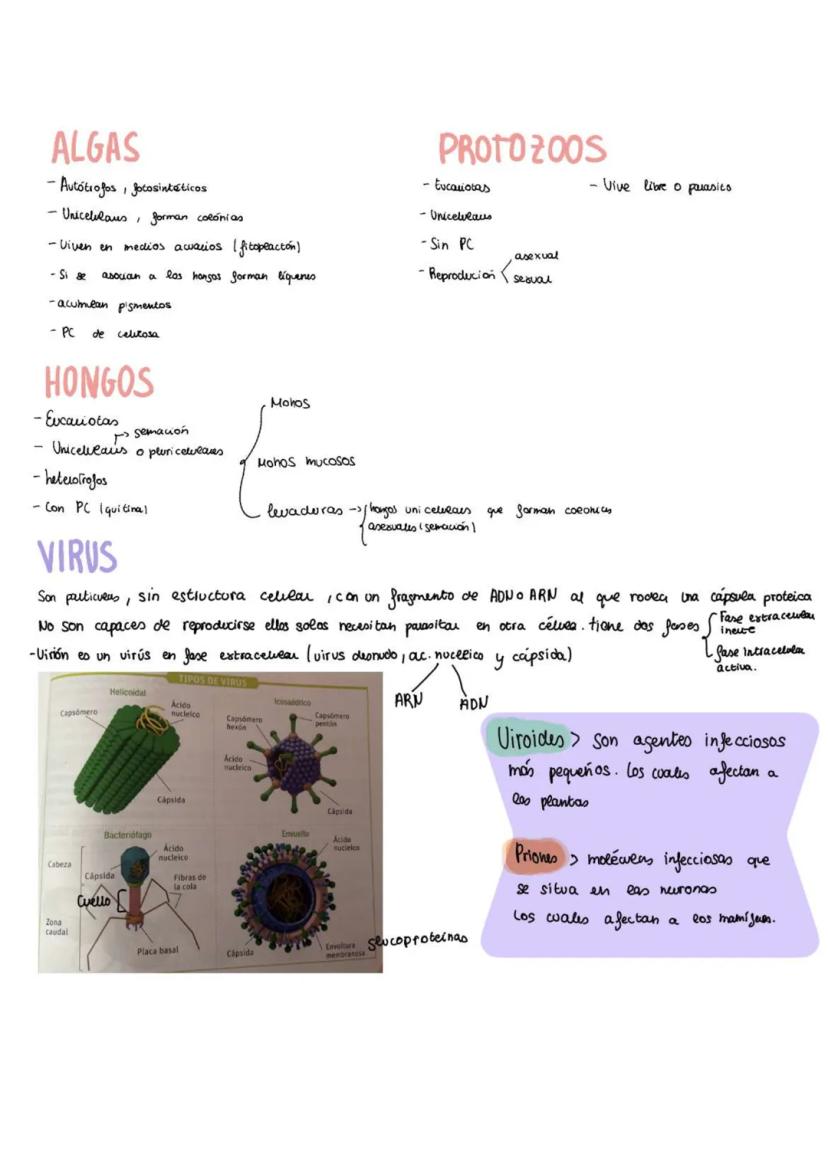 ALGAS
- Autótrofos, fotosintéticos
- Unicelulares, forman colónias
- Viven en medios acuarios (fitoplactón)
- Si se asocian a los hongos forman líquenes
- acumulan pigmentos
- PC de celulosa
PROTOZOOS
- Eucariotas
- Vive libre o parasito
- Unicelulares
- Sin PC
- Reprodución
asexual
sexual
HONGOS
- Eucariotas
gemación
- Unicelulares o pluricelulares
- heterótrofos
- Con PC (quitina)
Mohos
Mohos mucosos
levaduras -> hongos unicelulares que forman colonias
asexuales (gemación)
VIRUS
Son partículas, sin estructura celular, con un fragmento de ADN o ARN al que rodea una cápsula proteica
No son capaces de reproducirse ellos solos necesitan parasitar en otra célula. tiene dos fases
Fase extracelular
inerte
fase intracelular
activa.
- Virión es un virús en fase extracelular (virus desnudo, ac. nucelico y cápsida)
ARN
ADN
TIPOS DE VIRUS
Helicoidal
Capsómero
Ácido
nucleico
Cápsida
Icosaédrico
Capsómero
hexón
Capsómero
pentón
Ácido
nucleico
Cápsida
Bacteriófago
Cabeza
Ácido
nucleico
Cápsida
Fibras de
la cola
Cuello
Zona
caudal
Placa basal
Envuelto
Ácido
nucleico
Cápsida
Envoltura
membranosa
glucoproteínas
Viroides > son agentes infecciosos
más pequeños. Los cuales afectan a
las plantas
Priones > moléculas infecciosas que
se situa en las neuronas
Los cuales afectan a los mamíferos.